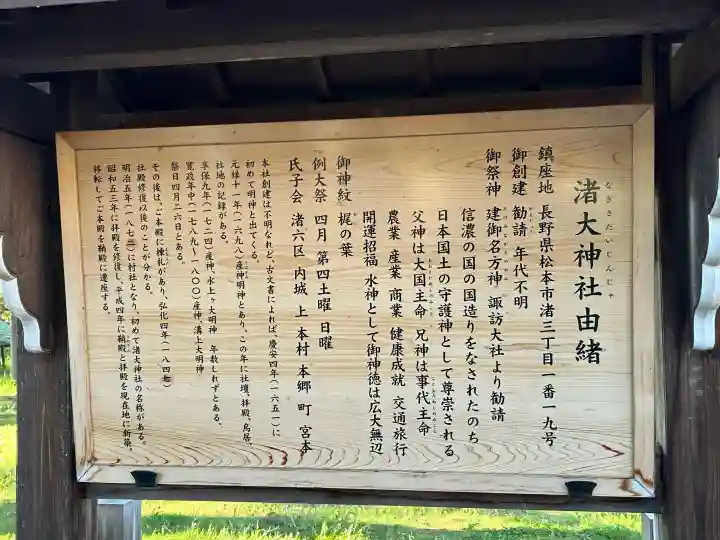 渚大神社由緒
なぎさだいじんじゃ
鎮座地 長野県松本市渚三丁目一番一九号
御創建 勧請 年代不明
御祭神 建御名方神 諏訪大社より勧請
信濃の国の国造りをなされたのち
日本国土の守護神として尊崇される
父神は大国主命 兄神は事代主命
農業 産業 商業 健康成就 交通旅行
開運招福 水神として御神徳は広大無辺
御神紋 梶の葉
例大祭 四月 第四土曜 日曜
氏子会 渚六区 内城 上 本村 本郷 町 宮本
本社創建は不明なれど、古文書によれば、慶安四年(一六五一)に
初めて明神と出てくる。
元禄十一年(一六九八)産神明神とあり、この年に社壇、拝殿、鳥居、
社地の記録がある。
享保九年(一七二四)産神、水上ヶ大明神 年数しれずとある。
寛政年中(一七八九～一八〇〇)産神、溝上大明神
祭日四月二六日とある。
その後は、ご本殿に棟札があり、弘化四年(一八四七)
社殿修復以後のことが分かる。
明治五年(一八七二)に村社となり、初めて渚大神社の名称がある。
昭和五三年に拝殿を修復し、平成四年に鞘殿と拝殿を現在地に新築、
移転してご本殿を鞘殿に遷座する。